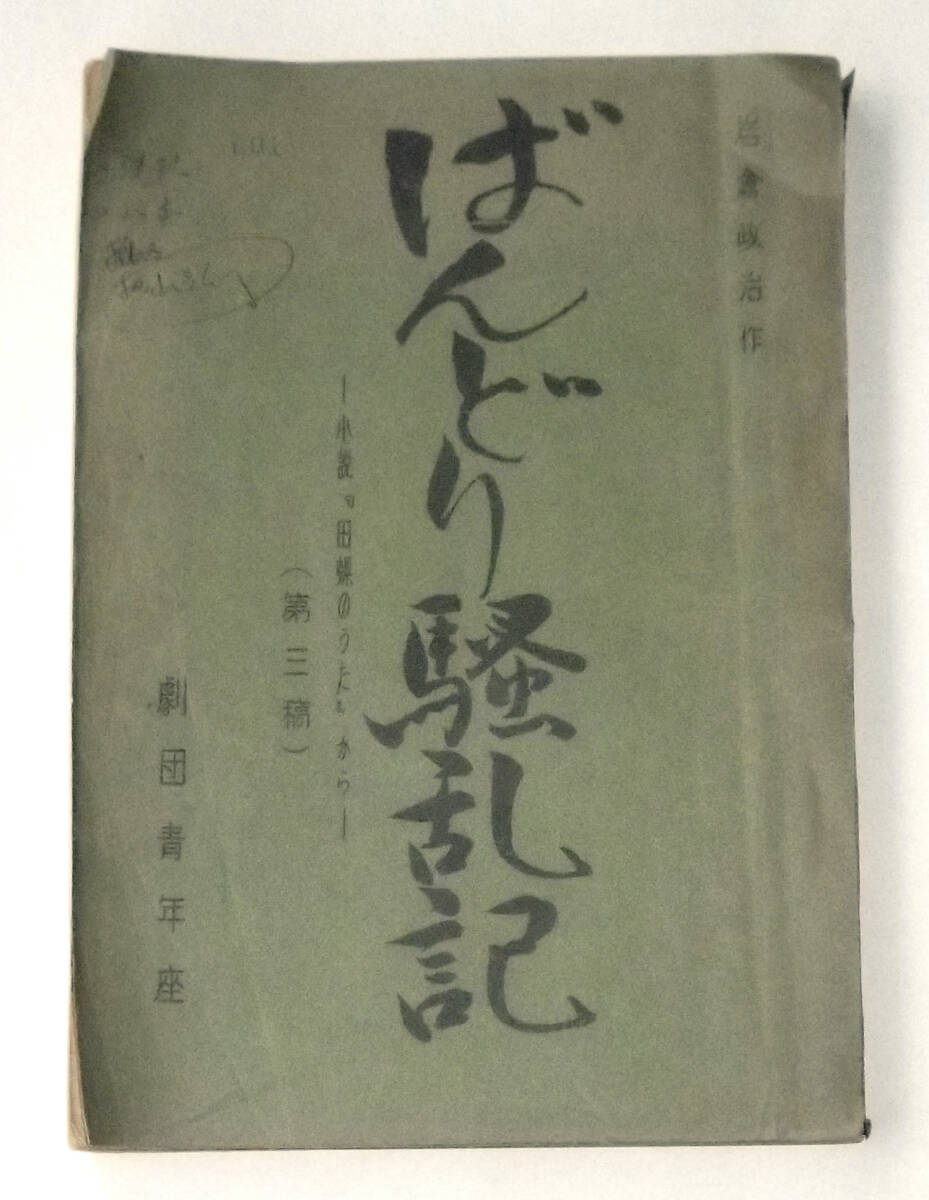 岩倉政治作
ばんどり騒乱記
―小説〝田螺のうた〟から―
(第三稿)
劇団青年座